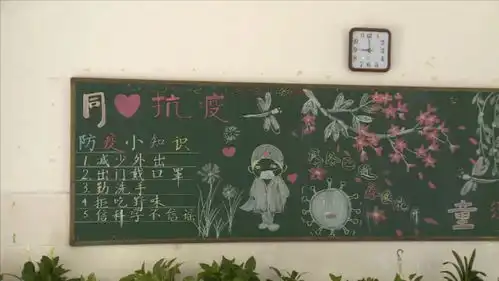 同❤抗疫
防疫小知识
1 减少外出
2 出门戴口罩
3 勤洗手
4 拒吃野味
5 信科学不信谣
童